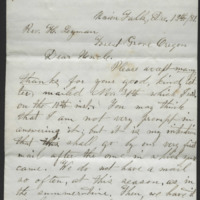 Falls, Dec. 13th/81
Rev. H. Lyman
Forest Grove Oregon
Dear
Please accept many
thanks for your good, kind let-
ter, mailed Nov. which
on the 10th inst. You may think
that I am not very prompt in
answering it, but it is my intention
that shall go by out very first
mail after the one in which yours
came. We do not have a mail
so often, at this season, as in
the summertime. Then, we have